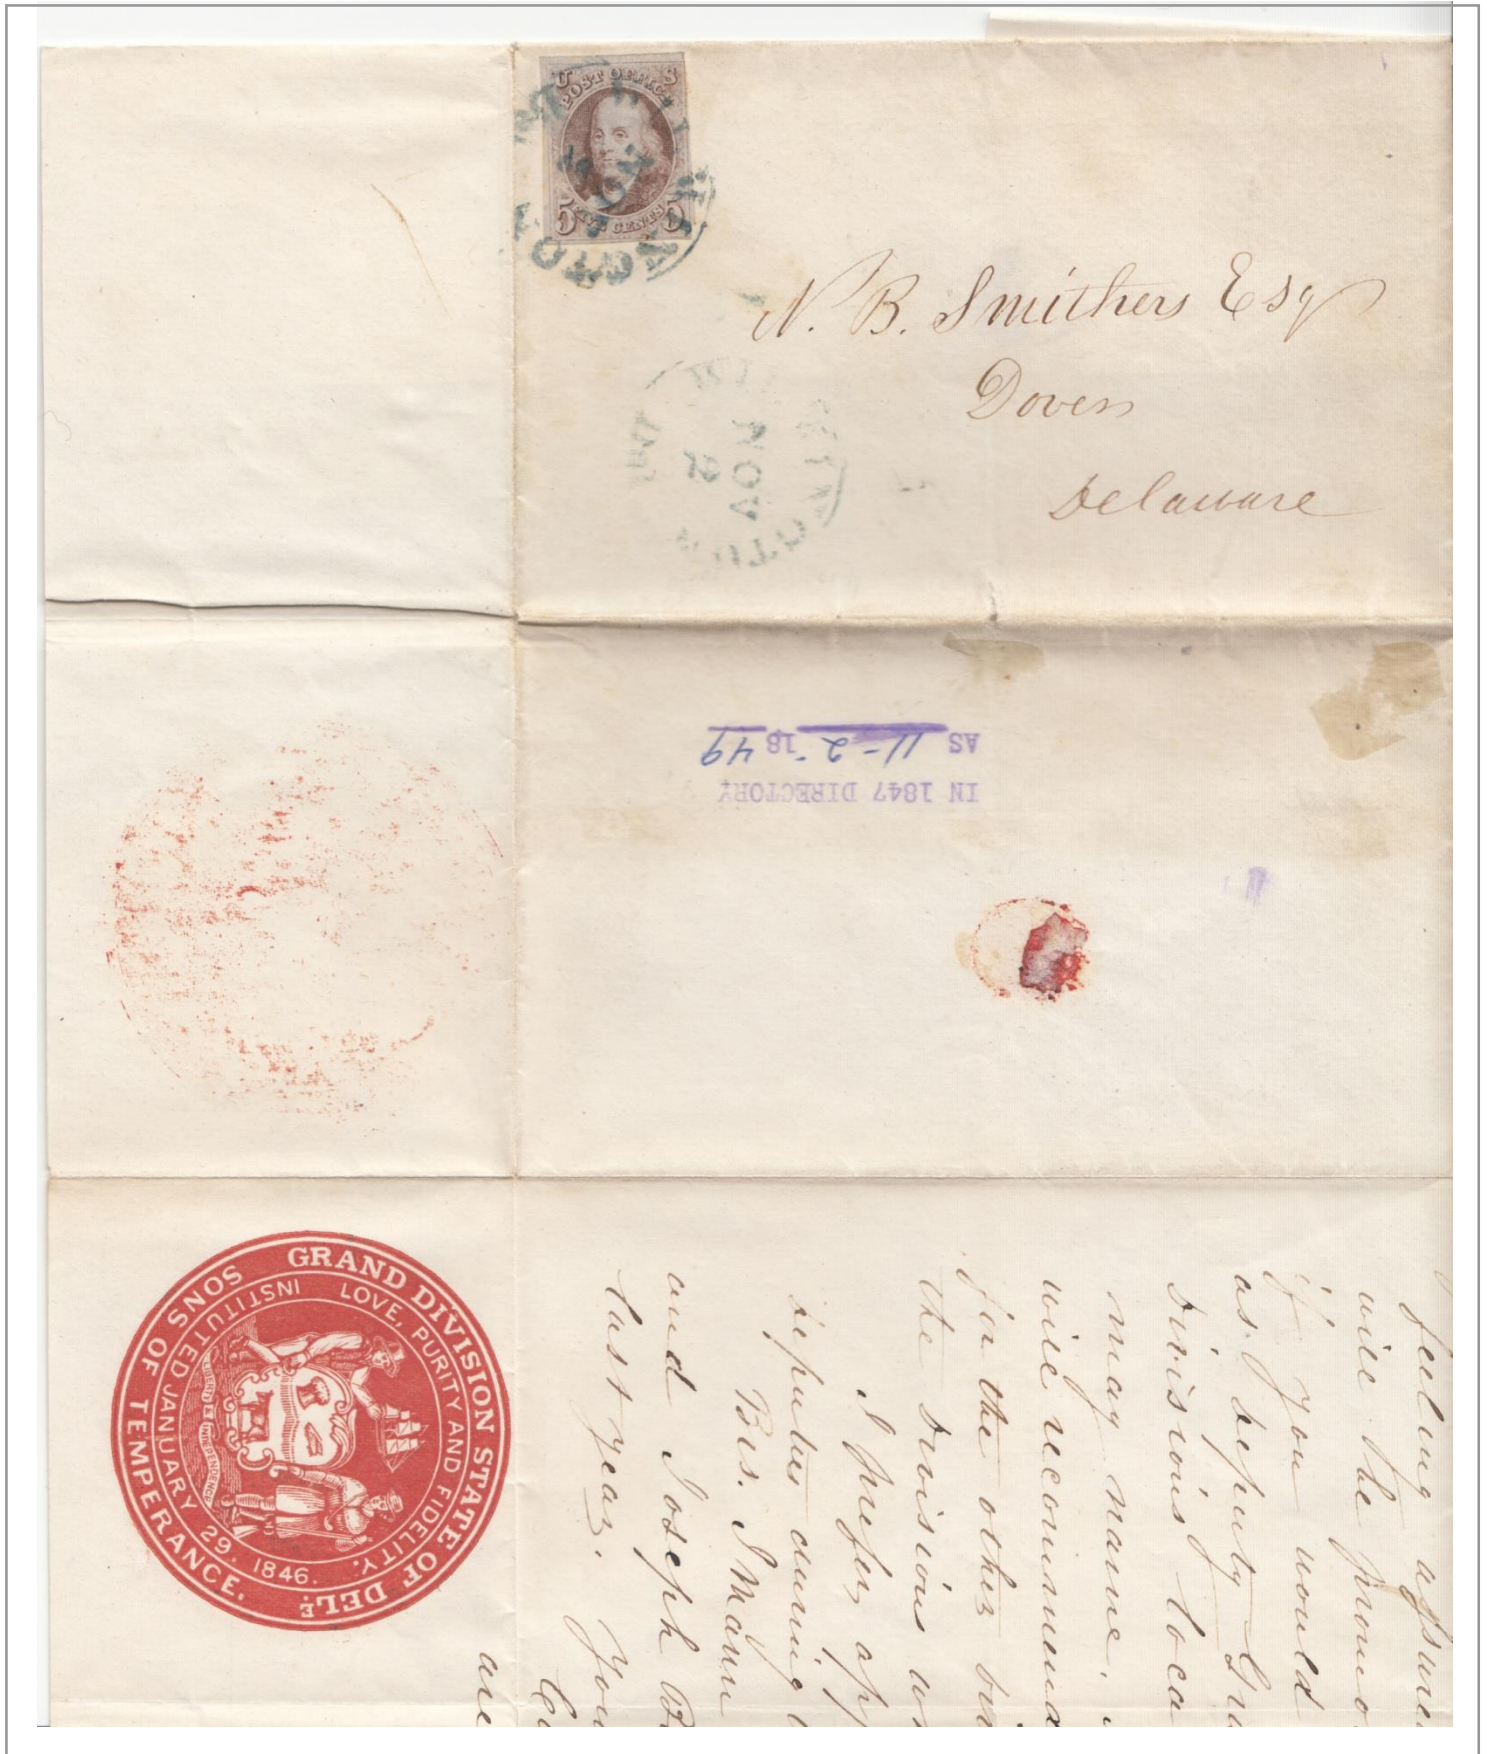 U S
POST OFFICE
5 FIVE CENTS 5
NOV
N. B. Smithers Esq
Dover
Delaware
NOV
IN 1847 DIRECTORY
AS 11-2- 1849
GRAND DIVISION STATE OF DELE
SONS OF TEMPERANCE.
LOVE, PURITY AND FIDELITY.
INSTITUTED JANUARY 29. 1846.
LIBERTY & INDEPENDENCE
feeling assured
will be promo
if you would
as deputy Gr
divisions loca
may name.
will recommend
for the other
the divisions
I prefer app
deputies during
Bis. I Mann
and Joseph B
last year.
You
are